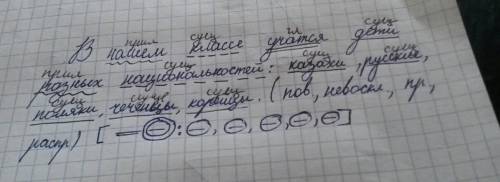 прил сущ гл сущ
В нашем классе учатся дети
прил сущ сущ сущ
разных национальностей: казахи, русские,
сущ сущ сущ
поляки, чеченцы, корейцы. (пов, невоскл, пр,
распр) [ — ⊖ : ⊖, ⊖, ⊖, ⊖, ⊖ ]